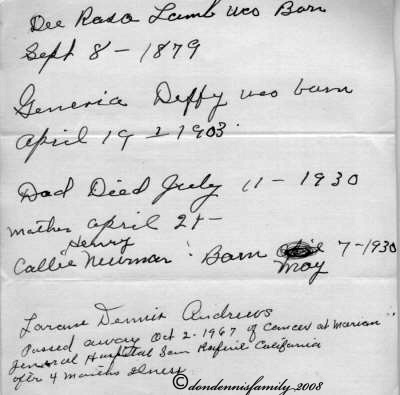 Dee Rasa Lamb was Born
Sept 8 - 1879
Generia Deffy was barn
April 19 - 1903.
Dad Died July 11 - 1930
mother april 21 -
Henry
Callie Neuman Born 7-1930
may
Larane Dennis Andrews
Passed away Oct 2. 1967 of Cancer at Marian
General Hospital San Rafine California
after 4 months illness
©dondennisfamily 2008